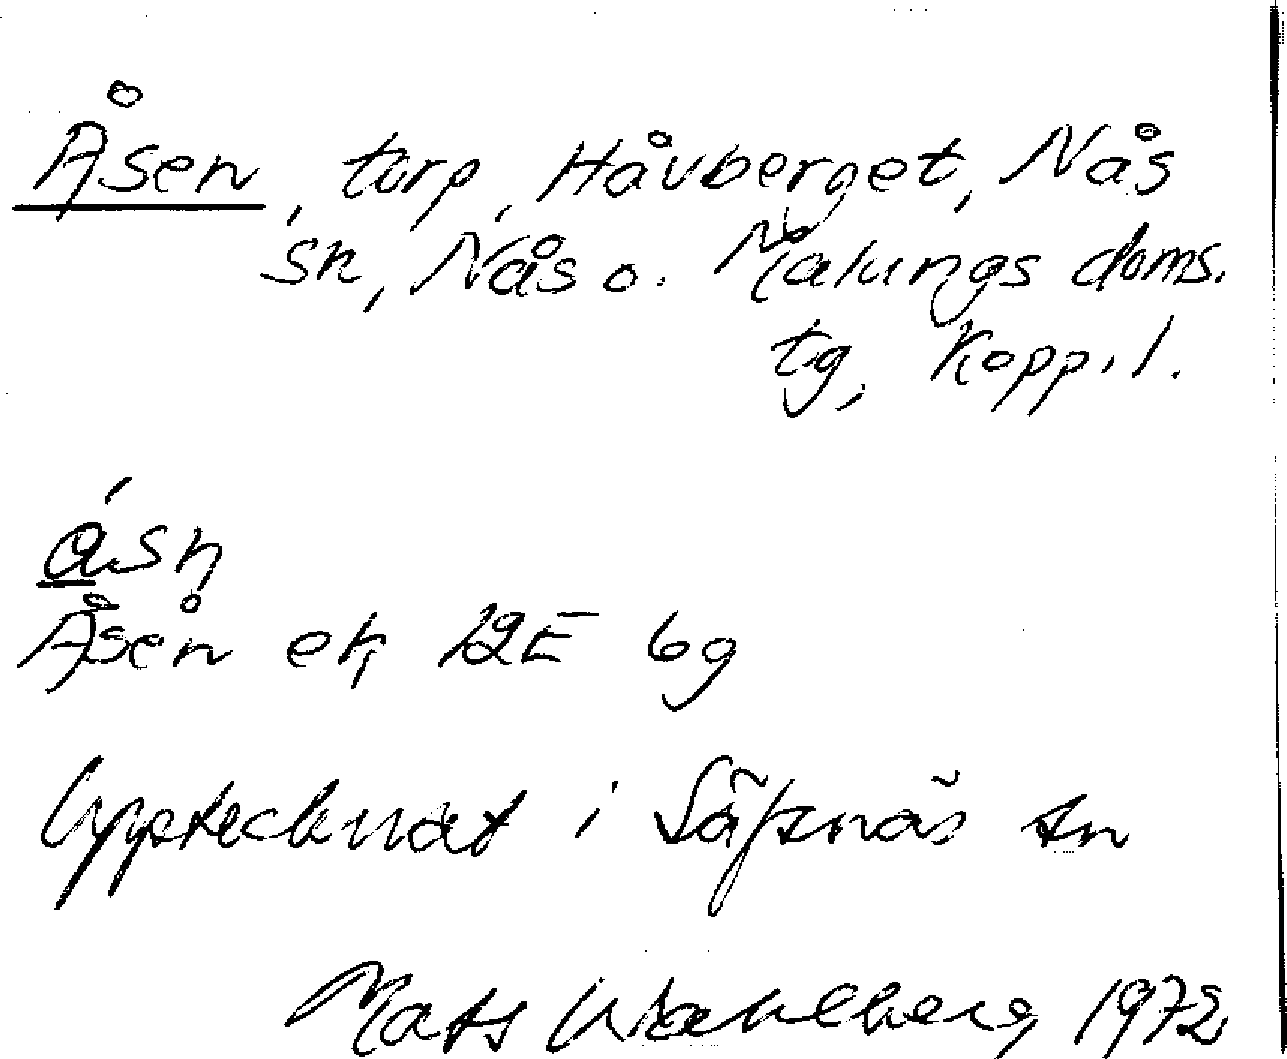 Åsen, torp, Håvberget, Nås
sn, Nås o. Malungs doms.
tg, Kopp. l.
åsn
Åsen ek, 12E 6g
Upptecknat i Säfsnäs sn
Mats Wahlberg 1972